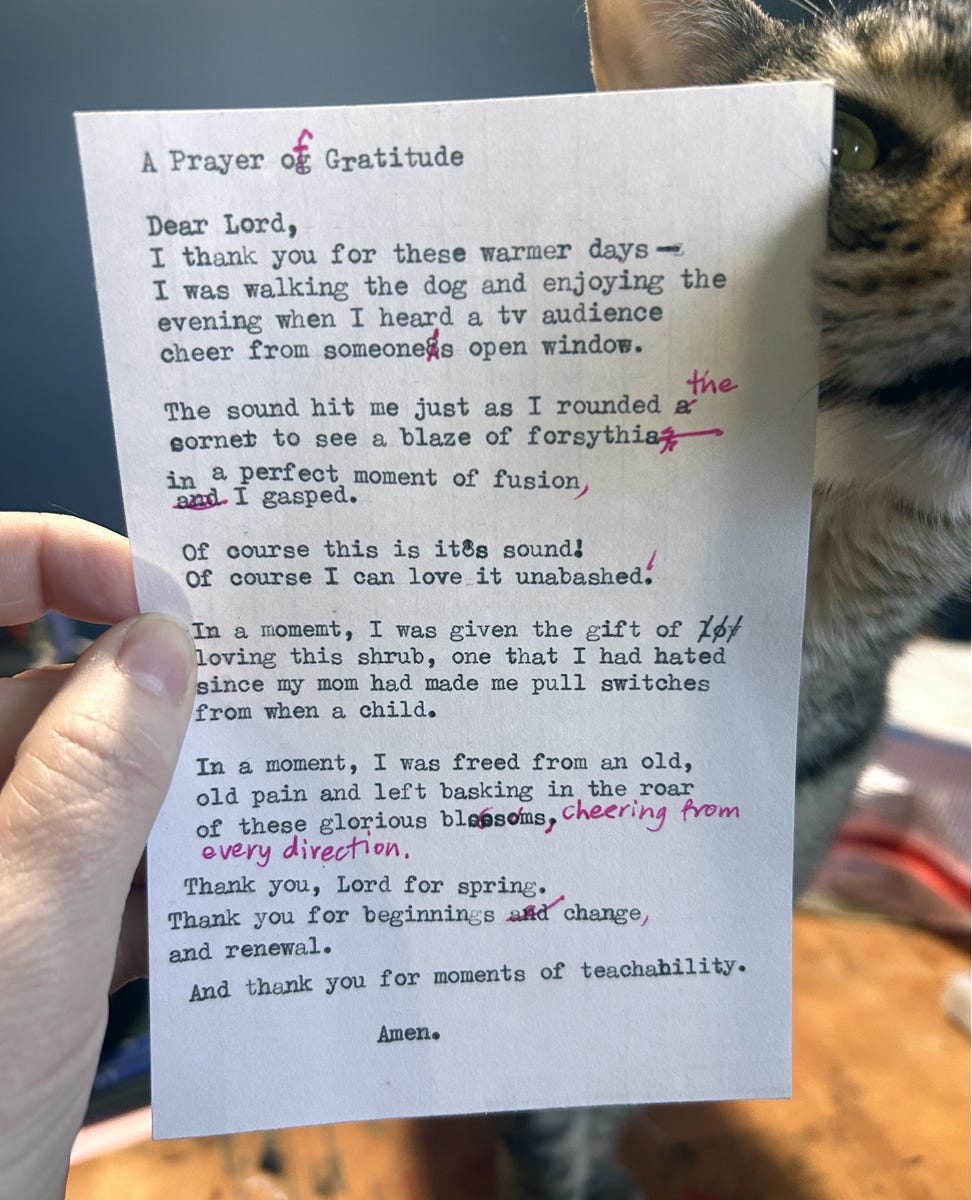 A Prayer of Gratitude
Dear Lord,
I thank you for these warmer days—
I was walking the dog and enjoying the
evening when I heard a tv audience
cheer from someone's open window.
The sound hit me just as I rounded a the
corner to see a blaze of forsythia
in a perfect moment of fusion,
and I gasped.
Of course this is it8s sound!
Of course I can love it unabashed!
In a momemt, I was given the gift of
loving this shrub, one that I had hated
since my mom had made me pull switches
from when a child.
In a moment, I was freed from an old,
old pain and left basking in the roar
of these glorious blossoms, cheering from
every direction.
Thank you, Lord for spring.
Thank you for beginnings and change,
and renewal.
And thank you for moments of teachability.
Amen.